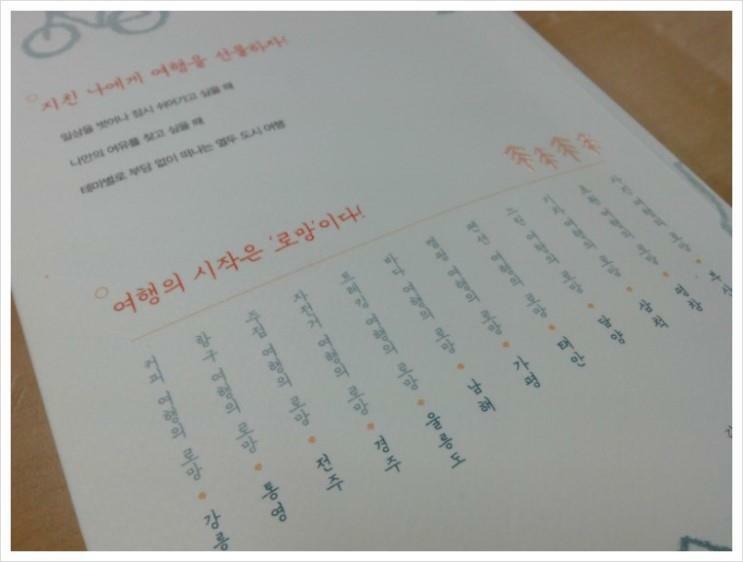 지친 나에게 여행을 선물하자!
일상을 벗어나 잠시 쉬어가고 싶을 때
나만의 여유를 찾고 싶을 때
테마별로 부담 없이 떠나는 열두 도시 여행
여행의 시작은 '로망'이다!
커피 여행의 로망 • 강릉
항구 여행의 로망 • 통영
여행의 로망 • 전주
자전거 여행의 로망 • 경주
트레킹 여행의 로망 • 울릉도
바다 여행의 로망 • 남해
캠핑 여행의 로망 • 가평
펜션 여행의 로망 • 태안
느린 여행의 로망 • 담양
기차 여행의 로망 • 삼척
초원 여행의 로망 • 평창
사진 여행의 로망 • 부산